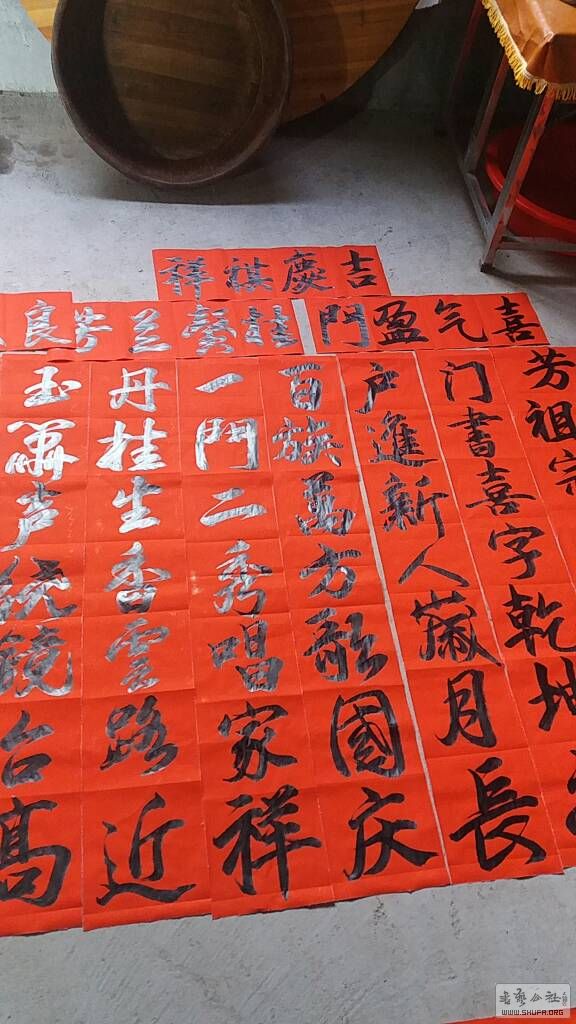 吉慶祺祥
喜气盈門
桂馨兰芳
良
芳祖宗
门書喜字乾坤
户進新人歲月長
百族萬方歌國庆
一門二秀唱家祥
丹桂生香雲路近
玉箫声绕镜台高
书艺公社
WWW.SHUFA.ORG